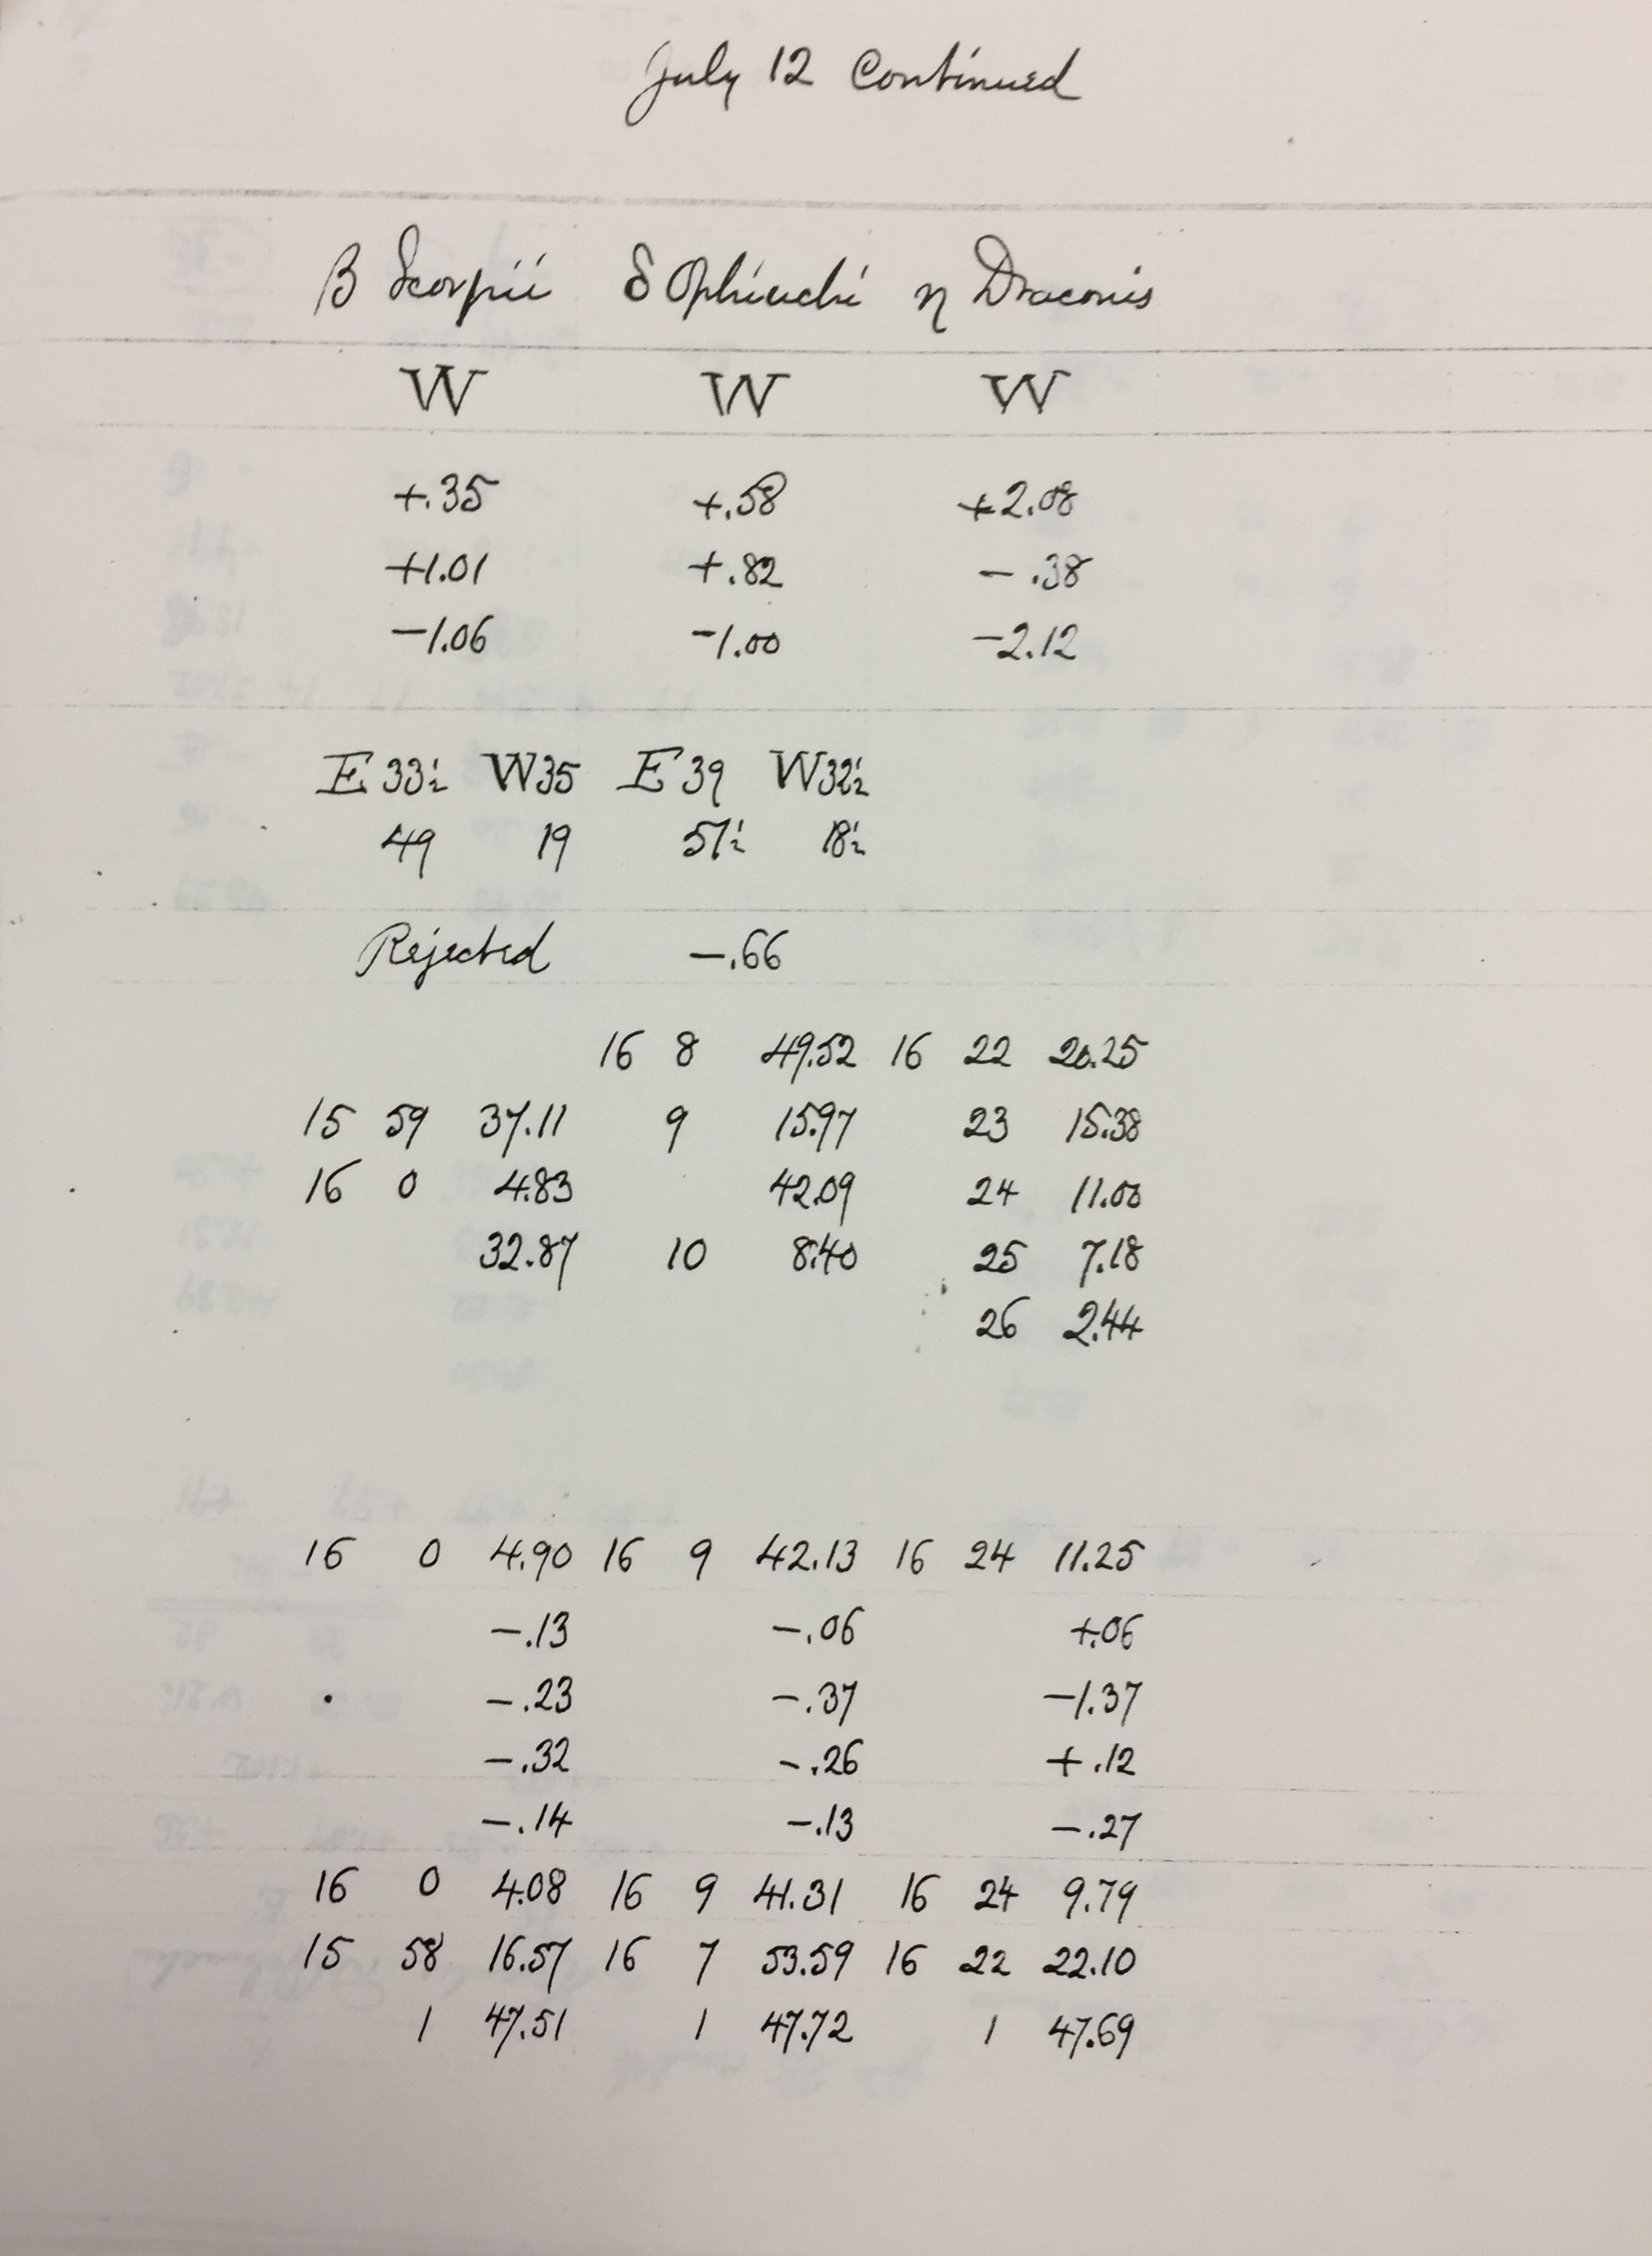 July 12 Continued
β Scorpii δ Ophiuchi η Draconis
W W W
+.35 +.58 +2.08
+1.01 +.82 -.38
-1.06 -1.00 -2.12
E 33½ W 35 E 39 W 32½
49 19 51½ 18½
Rejected -.66
16 8 49.52 16 22 20.25
15 59 37.11 9 15.97 23 15.38
16 0 4.83 42.09 24 11.00
32.87 10 8.40 25 7.18
26 2.44
16 0 4.90 16 9 42.13 16 24 11.25
-.13 -.06 +.06
-.23 -.37 -1.37
-.32 -.26 +.12
-.14 -.13 -.27
16 0 4.08 16 9 41.31 16 24 9.79
15 58 16.57 16 7 53.59 16 22 22.10
1 47.51 1 47.72 1 47.69